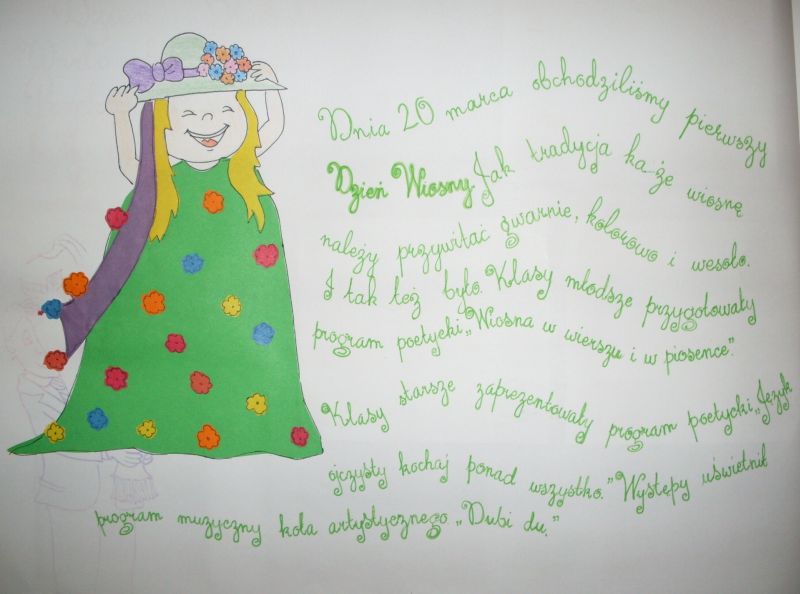 Dnia 20 marca obchodziliśmy pierwszy
Dzień Wiosny. Jak tradycja ka-że wiosnę
należy przywitać gwarnie, kolorowo i wesoło.
I tak też było. Klasy młodsze przygotowały
program poetycki „Wiosna w wierszu i w piosence."
Klasy starsze zaprezentowały program poetycki „Język
ojczysty kochaj ponad wszystko." Występy uświetnił
program muzyczny koła artystycznego „Dubi du."